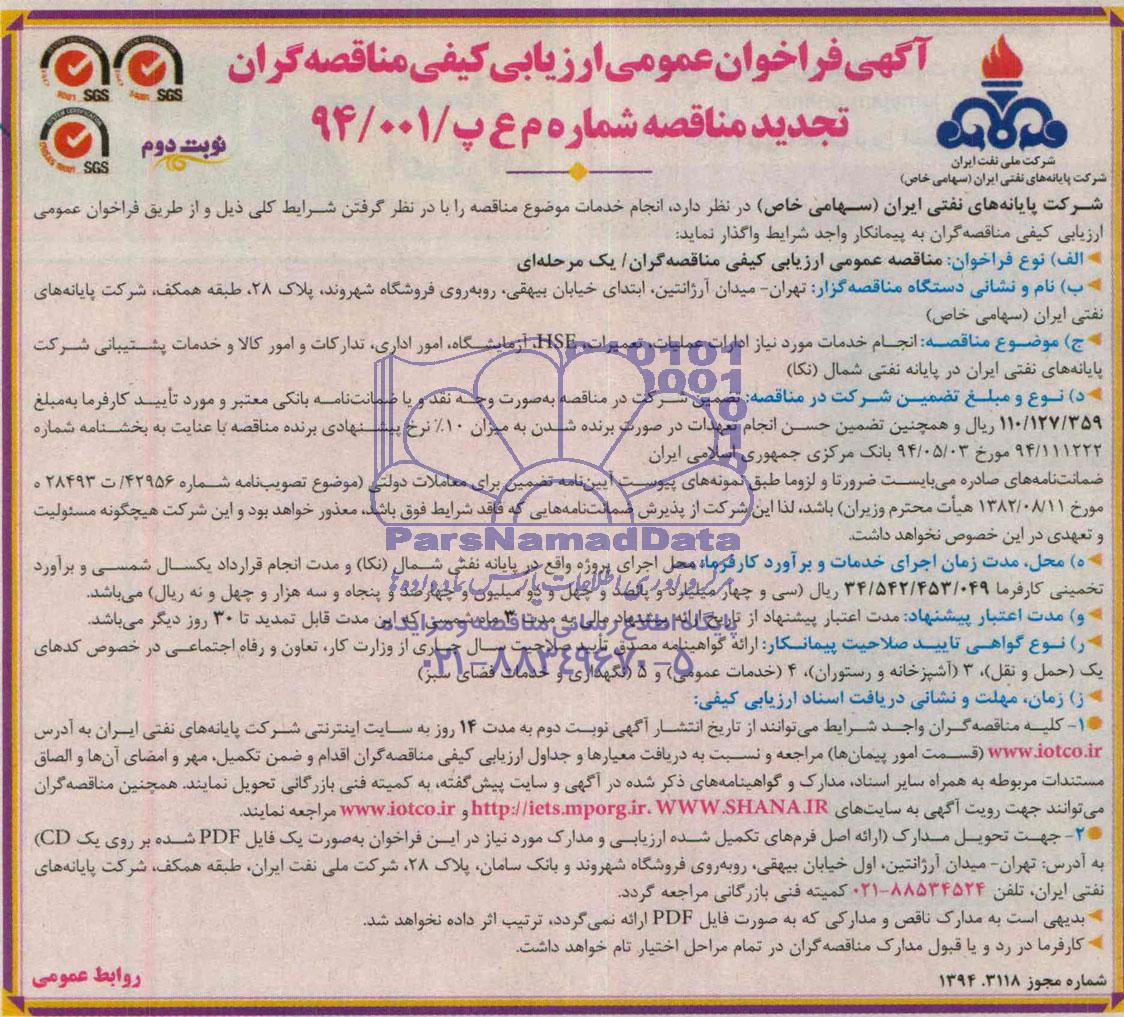 آگهی فراخوان عمومی ارزیابی کیفی مناقصه‌گران
تجدید مناقصه شماره م ع پ/۹۴/۰۰۱
نوبت دوم
SGS
SGS
SGS
شرکت ملی نفت ایران
شرکت پایانه‌های نفتی ایران (سهامی خاص)
شرکت پایانه‌های نفتی ایران (سهامی خاص) در نظر دارد، انجام خدمات موضوع مناقصه را با در نظر گرفتن شرایط کلی ذیل و از طریق فراخوان عمومی
ارزیابی کیفی مناقصه‌گران به پیمانکار واجد شرایط واگذار نماید:
الف) نوع فراخوان: مناقصه عمومی ارزیابی کیفی مناقصه‌گران/ یک مرحله‌ای
ب) نام و نشانی دستگاه مناقصه‌گزار: تهران- میدان آرژانتین، ابتدای خیابان بیهقی، روبه‌روی فروشگاه شهروند، پلاک ۲۸، طبقه همکف، شرکت پایانه‌های
نفتی ایران (سهامی خاص)
ج) موضوع مناقصه: انجام خدمات مورد نیاز ادارات عملیات، تعمیرات، HSE، آزمایشگاه، امور اداری، تدارکات و امور کالا و خدمات پشتیبانی شرکت
پایانه‌های نفتی ایران در پایانه نفتی شمال (نکا)
د) نوع و مبلغ تضمین شرکت در مناقصه: تضمین شرکت در مناقصه به‌صورت وجه نقد و یا ضمانت‌نامه بانکی معتبر و مورد تأیید کارفرما به‌مبلغ
۱۱۰/۱۲۷/۳۵۹ ریال و همچنین تضمین حسن انجام تعهدات در صورت برنده شدن به میزان ۱۰٪ نرخ پیشنهادی برنده مناقصه با عنایت به بخشنامه شماره
۹۴/۱۱۱۲۲۲ مورخ ۹۴/۰۵/۰۳ بانک مرکزی جمهوری اسلامی ایران
ضمانت‌نامه‌های صادره می‌بایست ضرورتا و لزوما طبق نمونه‌های پیوست آیین‌نامه تضمین برای معاملات دولتی (موضوع تصویب‌نامه شماره ۴۲۹۵۶/ ت ۲۸۴۹۳ ه
مورخ ۱۳۸۲/۰۸/۱۱ هیأت محترم وزیران) باشد، لذا این شرکت از پذیرش ضمانت‌نامه‌هایی که فاقد شرایط فوق باشد، معذور خواهد بود و این شرکت هیچگونه مسئولیت
و تعهدی در این خصوص نخواهد داشت.
ه) محل، مدت زمان اجرای خدمات و برآورد کارفرما: محل اجرای پروژه واقع در پایانه نفتی شمال (نکا) و مدت انجام قرارداد یکسال شمسی و برآورد
تخمینی کارفرما ۳۴/۵۴۲/۴۵۳/۰۴۹ ریال (سی و چهار میلیارد و پانصد و چهل و دو میلیون و چهارصد و پنجاه و سه هزار و چهل و نه ریال) می‌باشد.
و) مدت اعتبار پیشنهاد: مدت اعتبار پیشنهاد از تاریخ ارائه پیشنهاد مالی به مدت ۳ ماه شمسی که این مدت قابل تمدید تا ۳۰ روز دیگر می‌باشد.
ر) نوع گواهی تایید صلاحیت پیمانکار: ارائه گواهینامه مصدق تأیید صلاحیت سال جاری از وزارت کار، تعاون و رفاه اجتماعی در خصوص کدهای
یک (حمل و نقل)، ۳ (آشپزخانه و رستوران)، ۴ (خدمات عمومی) و ۵ (نگهداری و خدمات فضای سبز)
ز) زمان، مهلت و نشانی دریافت اسناد ارزیابی کیفی:
۱- کلیه مناقصه‌گران واجد شرایط می‌توانند از تاریخ انتشار آگهی نوبت دوم به مدت ۱۴ روز به سایت اینترنتی شرکت پایانه‌های نفتی ایران به آدرس
www.iotco.ir (قسمت امور پیمان‌ها) مراجعه و نسبت به دریافت معیارها و جداول ارزیابی کیفی مناقصه‌گران اقدام و ضمن تکمیل، مهر و امضای آن‌ها و الصاق
مستندات مربوطه به همراه سایر اسناد، مدارک و گواهینامه‌های ذکر شده در آگهی و سایت پیش‌گفته، به کمیته فنی بازرگانی تحویل نمایند. همچنین مناقصه‌گران
می‌توانند جهت رویت آگهی به سایت‌های http://iets.mporg.ir، WWW.SHANA.IR و www.iotco.ir مراجعه نمایند.
۲- جهت تحویل مدارک (ارائه اصل فرم‌های تکمیل شده ارزیابی و مدارک مورد نیاز در این فراخوان به‌صورت یک فایل PDF شده بر روی یک CD)
به آدرس: تهران- میدان آرژانتین، اول خیابان بیهقی، روبه‌روی فروشگاه شهروند و بانک سامان، پلاک ۲۸، شرکت ملی نفت ایران، طبقه همکف، شرکت پایانه‌های
نفتی ایران، تلفن ۸۸۵۳۴۵۲۴-۰۲۱ کمیته فنی بازرگانی مراجعه گردد.
بدیهی است به مدارک ناقص و مدارکی که به صورت فایل PDF ارائه نمی‌گردد، ترتیب اثر داده نخواهد شد.
کارفرما در رد و یا قبول مدارک مناقصه‌گران در تمام مراحل اختیار تام خواهد داشت.
شماره مجوز ۳۱۱۸. ۱۳۹۴
روابط عمومی
ParsNamadData
پایگاه اطلاع رسانی مناقصه و مزایده
۰۲۱-۸۸۳۴۹۶۷۰-۵